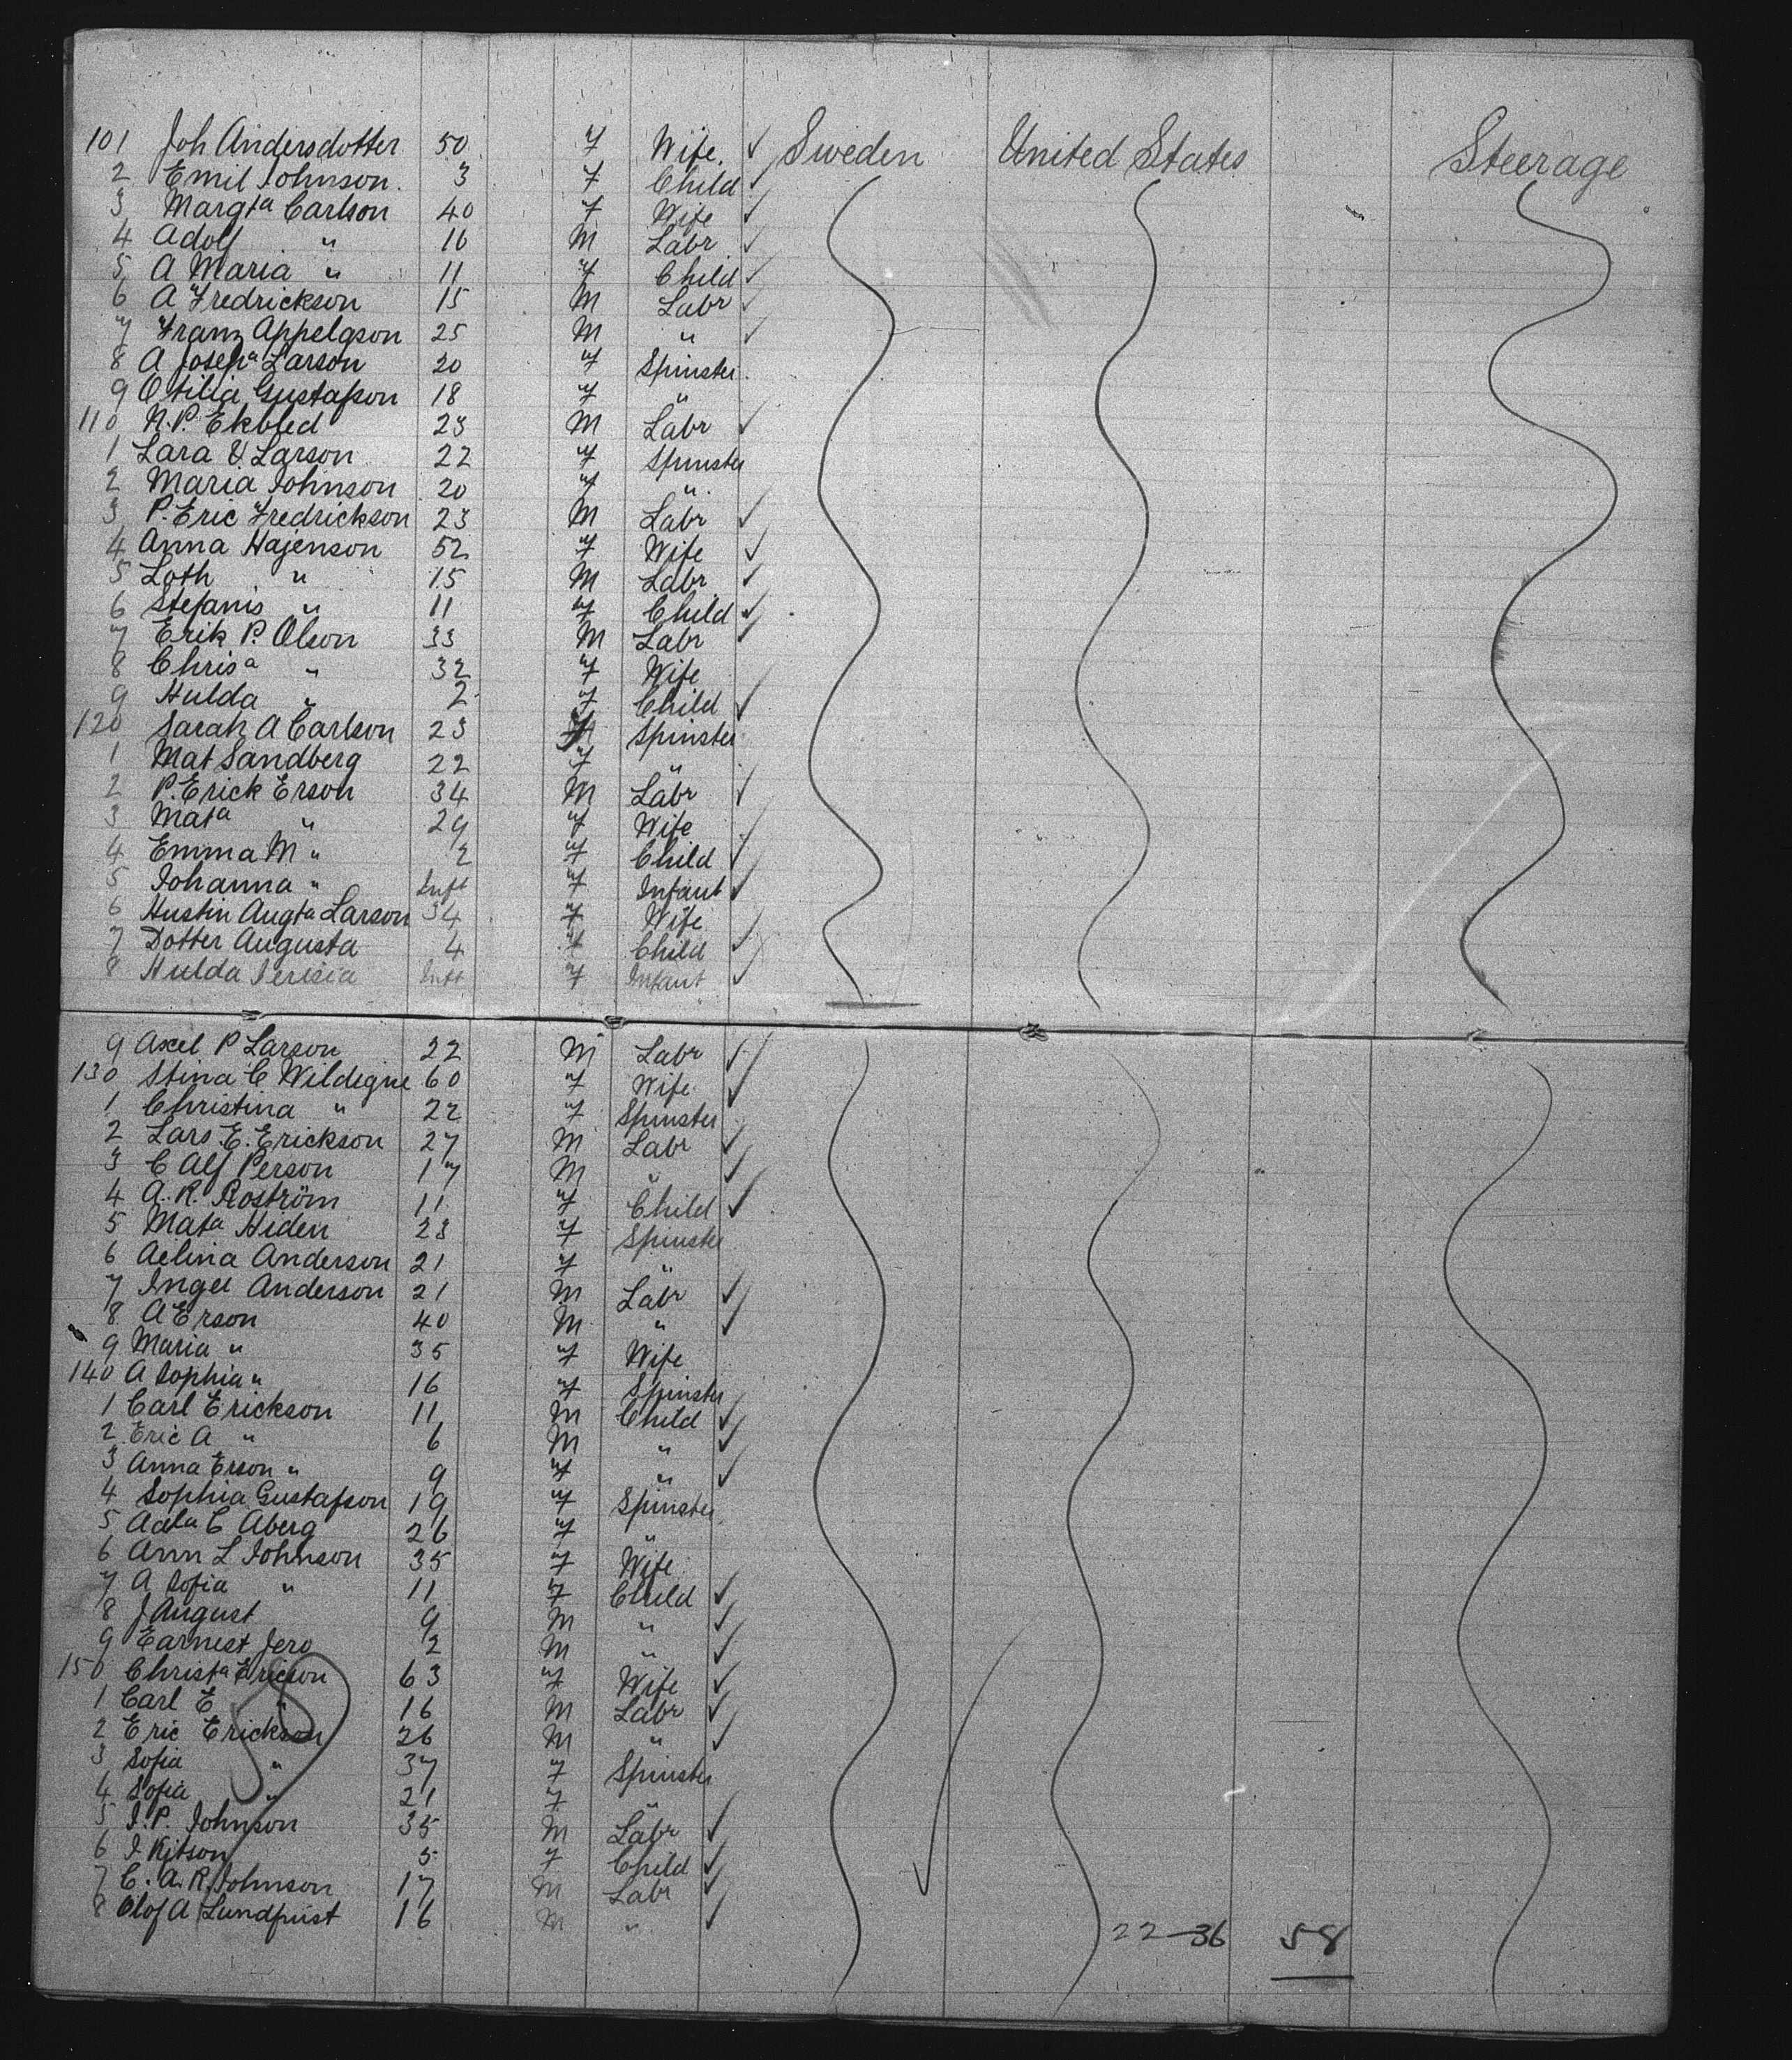 101 Joh Andersdotter 50 f Wife. ✓ Sweden United States Steerage
2 Emil Johnson. 3 f Child ✓
3 Margta Carlson 40 f Wife ✓
4 Adolf " 16 M Labr ✓
5 A Maria " 11 f Child ✓
6 A Fredrickson 15 M Labr ✓
7 Franz Appelgson 25 M " ✓
8 A Josepa Larson 20 f Spinster.
9 Otilia Gustafson 18 f "
110 N.P. Ekbled 23 M Labr ✓
1 Lara V. Larson 22 f Spinster
2 Maria Johnson 20 f "
3 P. Eric Fredrickson 23 M Labr ✓
4 Anna Hajenson 52 f Wife ✓
5 Loth " 15 M Labr ✓
6 Stefanis " 11 f Child ✓
7 Erik P. Olson 33 M Labr ✓
8 Chrisa " 32 f Wife
9 Hulda " 2 f Child ✓
120 Sarah A Carlson 23 f Spinster
1 Mat Sandberg 22 f "
2 P. Erick Erson 34 M Labr ✓
3 Mata " 29 f Wife
4 Emma M " 2 f Child ✓
5 Johanna " Inft f Infant ✓
6 Hustin Augta Larson 34 f Wife
7 Dotter Augusta 4 f Child ✓
8 Hulda Terisia Inft f Infant ✓
9 Axel P Larson 22 M Labr ✓
130 Stina C Wildegne 60 f Wife ✓
1 Christina " 22 f Spinster
2 Lars. E. Erickson 27 M Labr ✓
3 C Alf Person 17 M " ✓
4 A. R. Roström 11 f Child ✓
5 Mata Hiden 23 f Spinster
6 Aelina Anderson 21 f "
7 Ingel Anderson 21 M Labr ✓
8 A Erson 40 M " ✓
9 Maria " 35 f Wife
140 A Sophia " 16 f Spinster
1 Carl Erickson 11 M Child ✓
2 Eric A " 6 M " ✓
3 Anna Erson " 9 f " ✓
4 Sophia Gustafson 19 f Spinster
5 Adla C Aberg 26 f "
6 Ann L Johnson 35 f Wife
7 A Sofia " 11 f Child ✓
8 J August 9 M " ✓
9 Earnest Jero 2 M " ✓
150 Christa Ericson 63 f Wife ✓
1 Carl E " 16 M Labr ✓
2 Eric Erickson 26 M " ✓
3 Sofia " 37 f Spinster
4 Sofia " 21 f "
5 J. P. Johnson 35 M Labr ✓
6 J Kitson 5 f Child ✓
7 C. A. R. Johnson 17 M Labr ✓
8 Olof A Lundquist 16 M " ✓
22-36 58